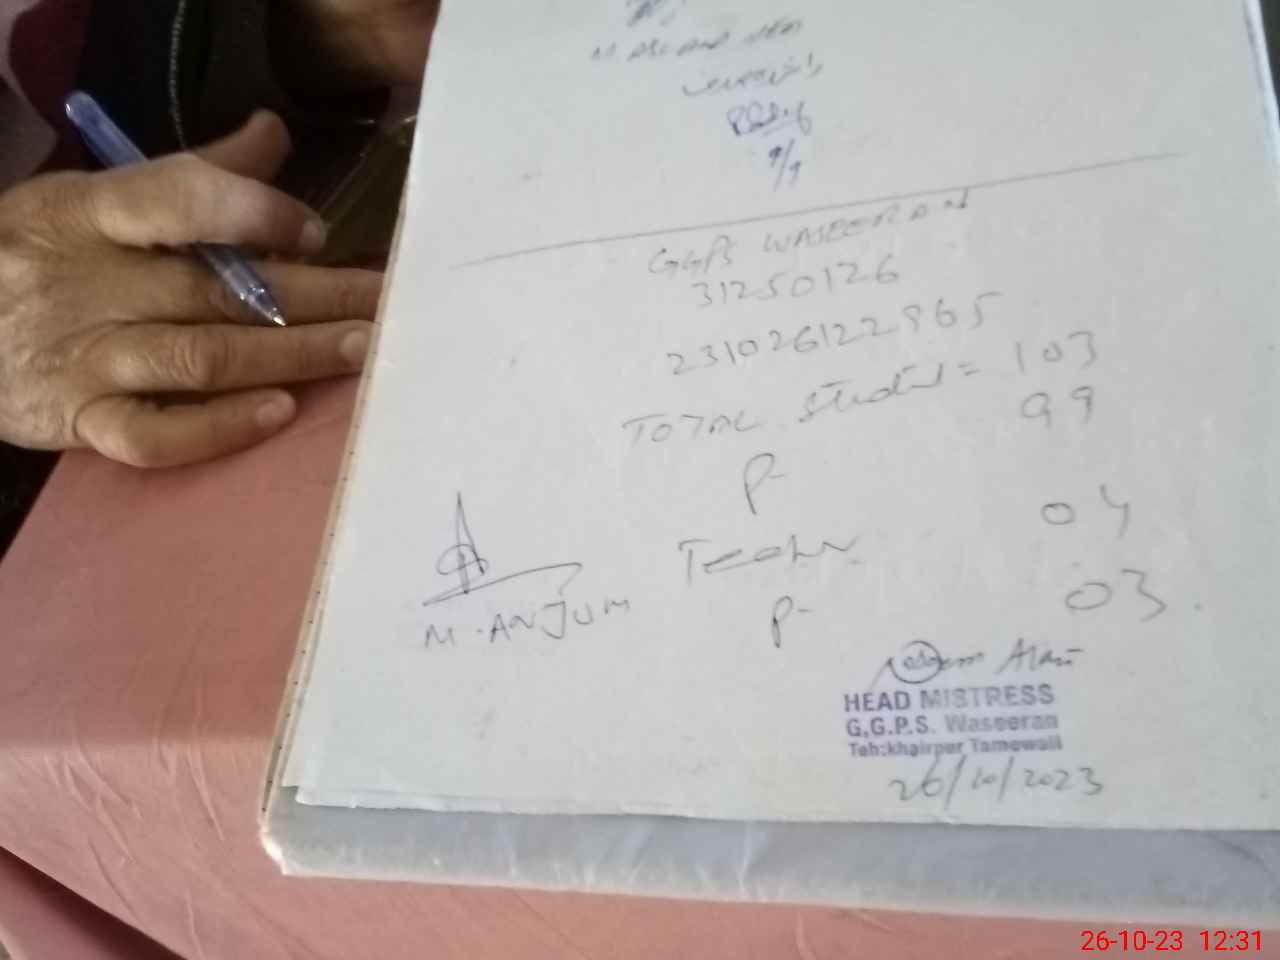 9/9
GGPS WASEERAN
31250126
231026122965
TOTAL Student = 103
P- 99
Teacher 04
P- 03
M. ANJUM
HEAD MISTRESS
G.G.P.S. Waseeran
Teh:khairpur Tamewali
26/10/2023
26-10-23 12:31